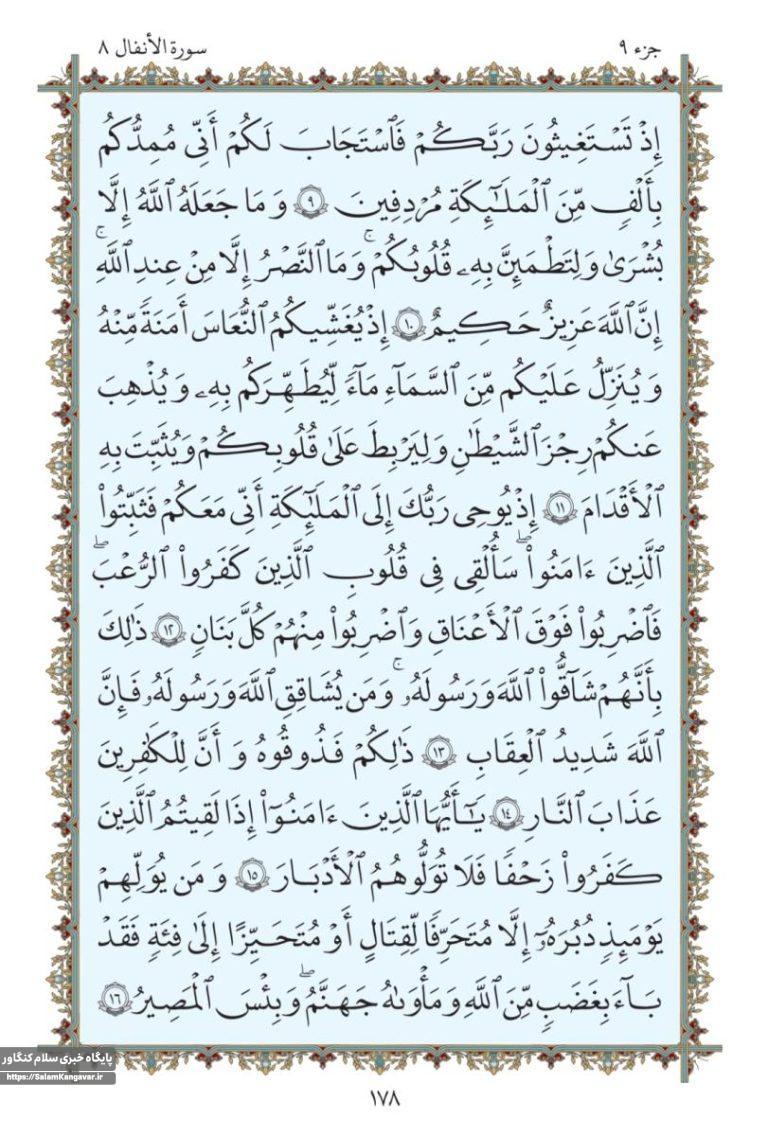 جزء ۹
سورة الأنفال ۸
إِذْ تَسْتَغِيثُونَ رَبَّكُمْ فَٱسْتَجَابَ لَكُمْ أَنِّى مُمِدُّكُم
بِأَلْفٍ مِّنَ ٱلْمَلَـٰٓئِكَةِ مُرْدِفِينَ ۹ وَمَا جَعَلَهُ ٱللَّهُ إِلَّا
بُشْرَىٰ وَلِتَطْمَئِنَّ بِهِۦ قُلُوبُكُمْ ۚ وَمَا ٱلنَّصْرُ إِلَّا مِنْ عِندِ ٱللَّهِ ۚ
إِنَّ ٱللَّهَ عَزِيزٌ حَكِيمٌ ۱۰ إِذْ يُغَشِّيكُمُ ٱلنُّعَاسَ أَمَنَةً مِّنْهُ
وَيُنَزِّلُ عَلَيْكُم مِّنَ ٱلسَّمَآءِ مَآءً لِّيُطَهِّرَكُم بِهِۦ وَيُذْهِبَ
عَنكُمْ رِجْزَ ٱلشَّيْطَـٰنِ وَلِيَرْبِطَ عَلَىٰ قُلُوبِكُمْ وَيُثَبِّتَ بِهِ
ٱلْأَقْدَامَ ۱۱ إِذْ يُوحِى رَبُّكَ إِلَى ٱلْمَلَـٰٓئِكَةِ أَنِّى مَعَكُمْ فَثَبِّتُوا۟
ٱلَّذِينَ ءَامَنُوا۟ ۖ سَأُلْقِى فِى قُلُوبِ ٱلَّذِينَ كَفَرُوا۟ ٱلرُّعْبَ ۖ
فَٱضْرِبُوا۟ فَوْقَ ٱلْأَعْنَاقِ وَٱضْرِبُوا۟ مِنْهُمْ كُلَّ بَنَانٍ ۱۲ ذَٰلِكَ
بِأَنَّهُمْ شَآقُّوا۟ ٱللَّهَ وَرَسُولَهُۥ ۚ وَمَن يُشَاقِقِ ٱللَّهَ وَرَسُولَهُۥ فَإِنَّ
ٱللَّهَ شَدِيدُ ٱلْعِقَابِ ۱۳ ذَٰلِكُمْ فَذُوقُوهُ وَأَنَّ لِلْكَـٰفِرِينَ
عَذَابَ ٱلنَّارِ ۱٤ يَـٰٓأَيُّهَا ٱلَّذِينَ ءَامَنُوٓا۟ إِذَا لَقِيتُمُ ٱلَّذِينَ
كَفَرُوا۟ زَحْفًا فَلَا تُوَلُّوهُمُ ٱلْأَدْبَارَ ۱۵ وَمَن يُوَلِّهِمْ
يَوْمَئِذٍ دُبُرَهُۥٓ إِلَّا مُتَحَرِّفًا لِّقِتَالٍ أَوْ مُتَحَيِّزًا إِلَىٰ فِئَةٍ فَقَدْ
بَآءَ بِغَضَبٍ مِّنَ ٱللَّهِ وَمَأْوَىٰهُ جَهَنَّمُ ۖ وَبِئْسَ ٱلْمَصِيرُ ۱٦
پایگاه خبری سلام کنگاور
https://SalamKangavar.ir
۱۷۸